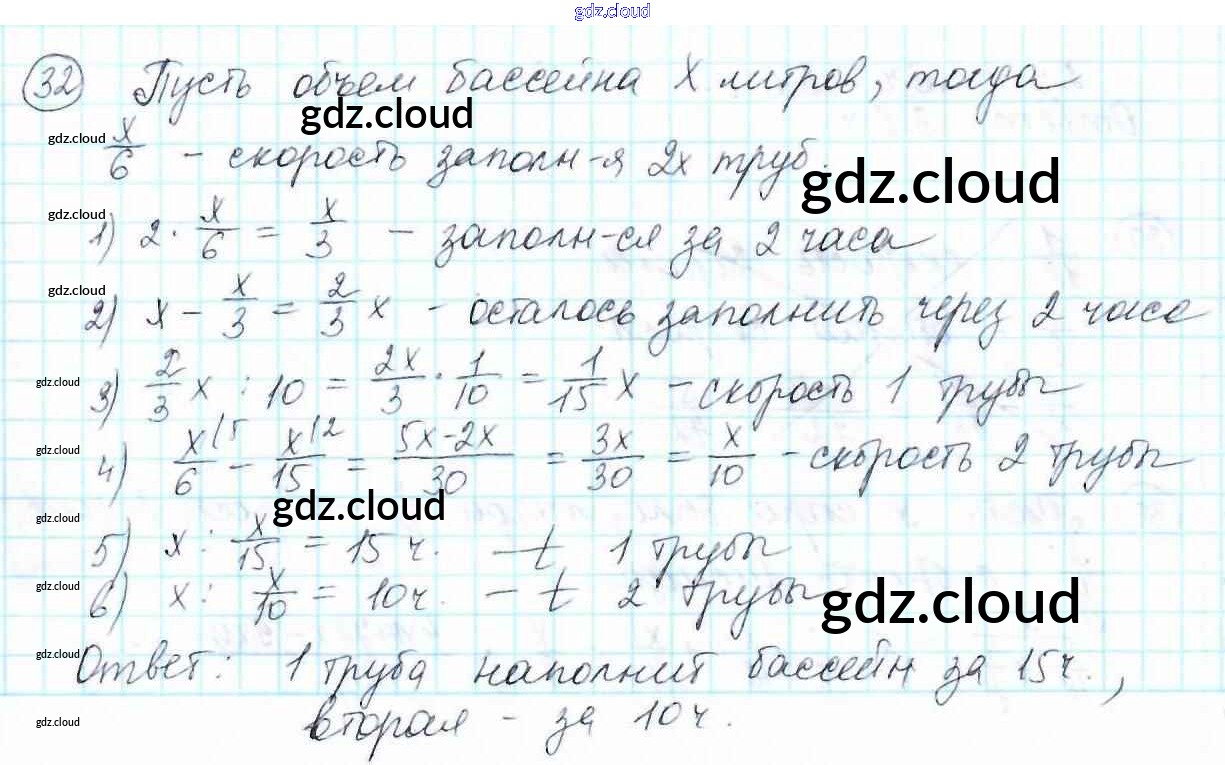 gdz.cloud
32 Пусть объем бассейна X литров, тогда
gdz.cloud
gdz.cloud
x/6 - скорость заполн-я 2х труб.
gdz.cloud
gdz.cloud
1) 2 · x/6 = x/3 - заполн-ся за 2 часа
gdz.cloud
2) x - x/3 = 2/3 x - осталось заполнить через 2 часа
gdz.cloud
3) 2/3 x : 10 = 2x/3 · 1/10 = 1/15 x - скорость 1 трубы
gdz.cloud
4) x/6 |5 - x/15 |2 = 5x-2x/30 = 3x/30 = x/10 - скорость 2 трубы
gdz.cloud
gdz.cloud
5) x : x/15 = 15 ч. - t 1 трубы
gdz.cloud
6) x : x/10 = 10ч. - t 2 трубы
gdz.cloud
gdz.cloud
Ответ: 1 труба наполнит бассейн за 15ч.,
gdz.cloud
вторая - за 10ч.